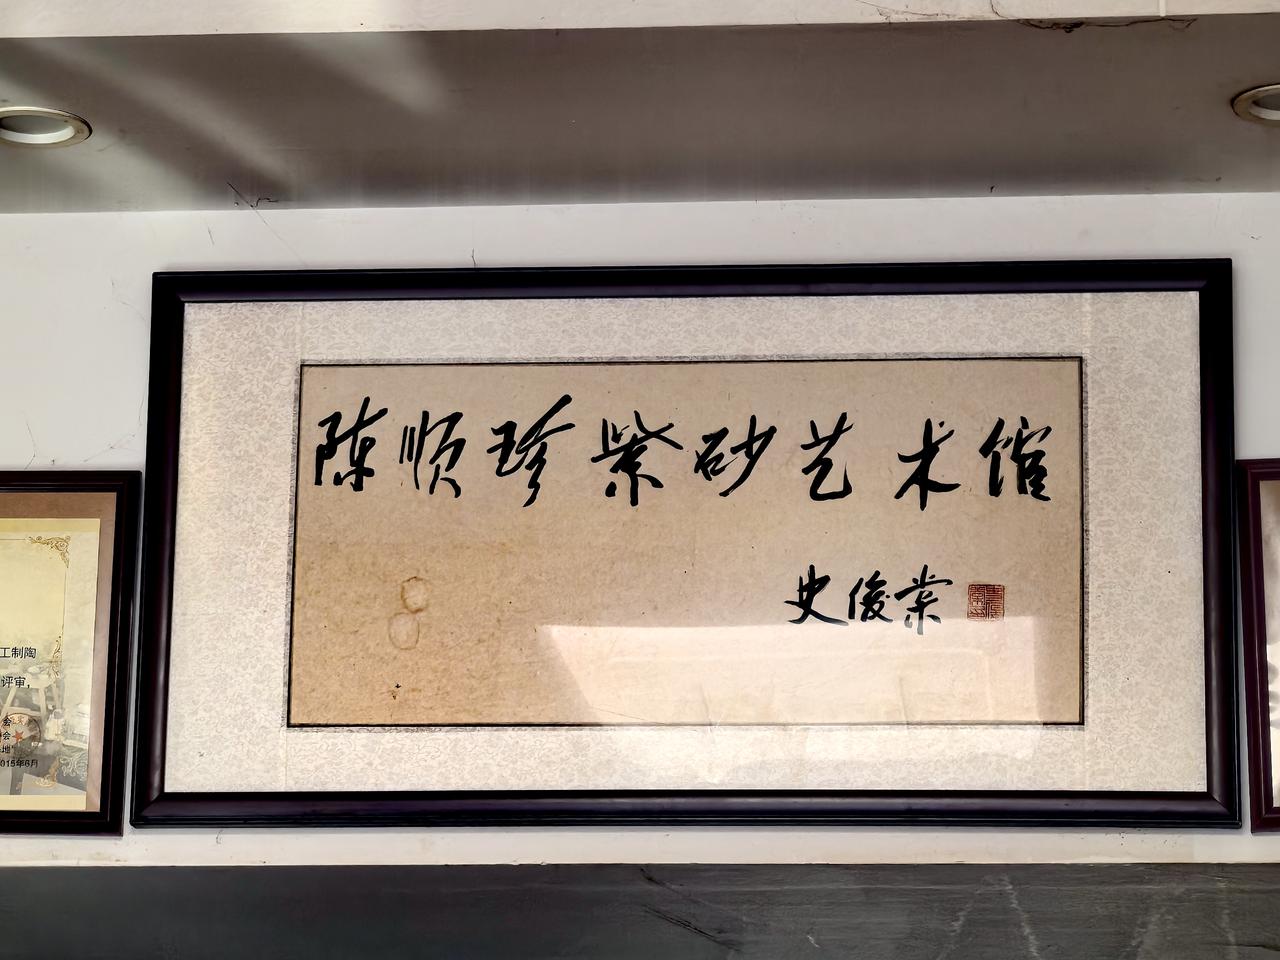 陈顺珍紫砂艺术馆
史俊棠
工制陶
评审,
会
会
地"
015年6月